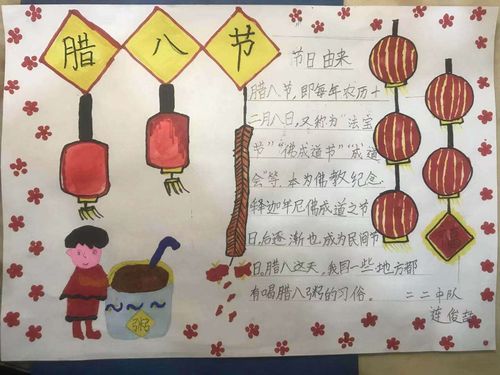 腊八节
节日由来
腊八节,即每年农历十
二月八日,又称为“法宝
节”“佛成道节”“成道
会”等。本为佛教纪念
释迦牟尼佛成道之节
日,后逐渐也成为民间节
日。腊八这天,我国一些地方都
有喝腊八粥的习俗。
二二中队
连俊喆
粥